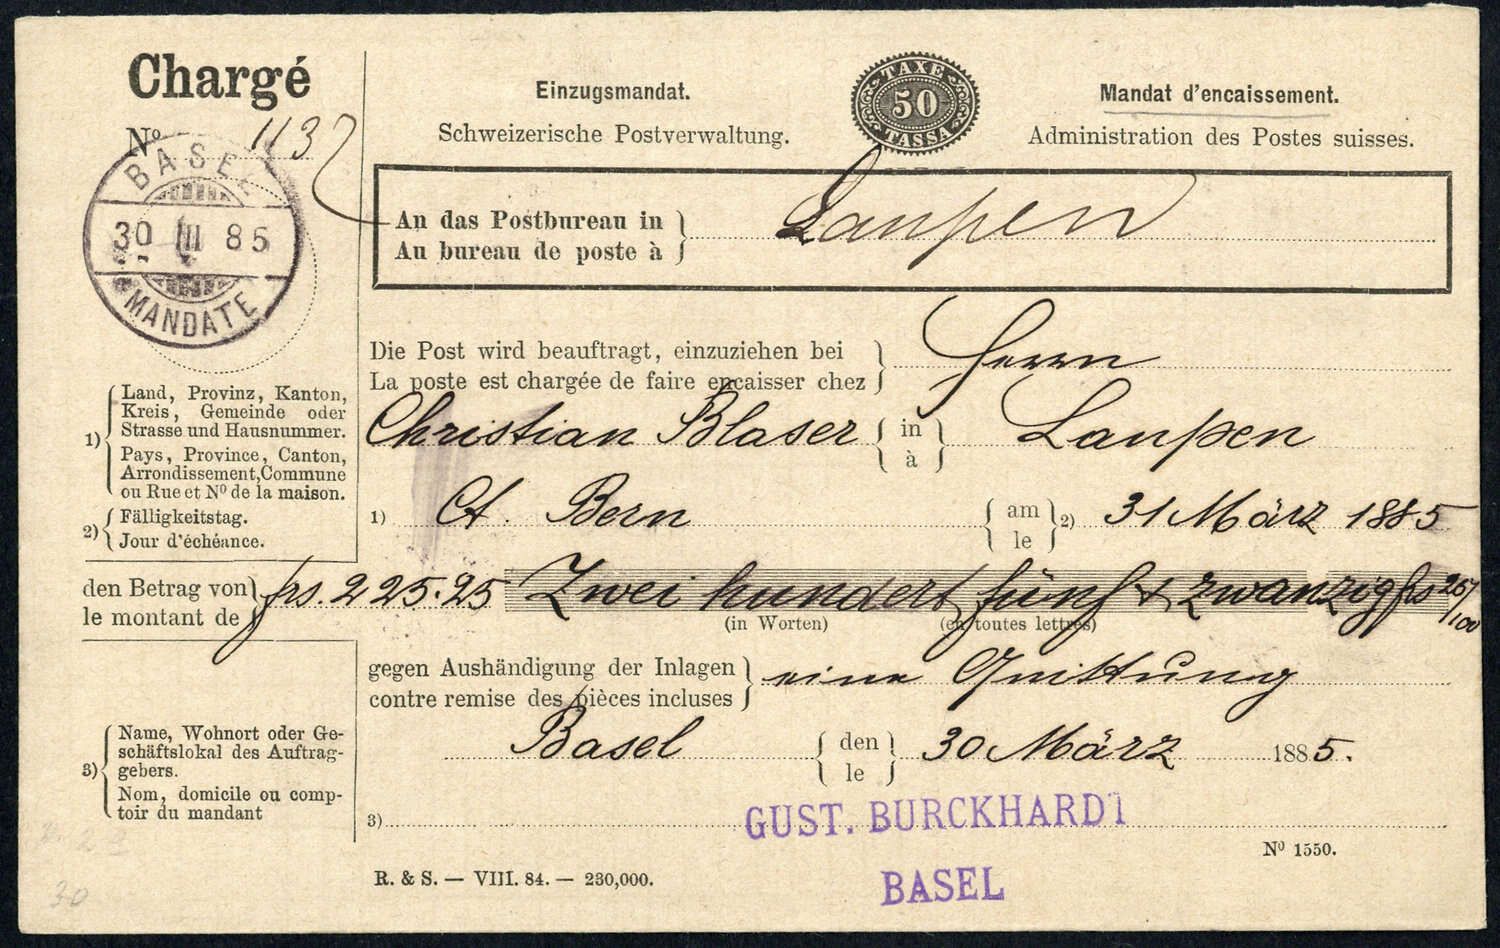 Chargé
Nº 1132
BASEL
30 III 85
MANDATE
Einzugsmandat.
Schweizerische Postverwaltung.
TAXE
50
TASSA
Mandat d'encaissement.
Administration des Postes suisses.
An das Postbureau in
Au bureau de poste à
Laupen
Die Post wird beauftragt, einzuziehen bei
La poste est chargée de faire encaisser chez
Herrn
Christian Blaser in à Laupen
1) Ct. Bern am le 2) 31 März 1885
1) Land, Provinz, Kanton,
Kreis, Gemeinde oder
Strasse und Hausnummer.
Pays, Province, Canton,
Arrondissement, Commune
ou Rue et Nº de la maison.
2) Fälligkeitstag.
Jour d'échéance.
den Betrag von
le montant de
frs. 225.25 Zwei hundert fünf & zwanzig frs 25/100
(in Worten) (en toutes lettres)
gegen Aushändigung der Inlagen
contre remise des pièces incluses
eine Quittung
Basel den le 30 März 1885.
3) Name, Wohnort oder Ge-
schäftslokal des Auftrag-
gebers.
Nom, domicile ou comp-
toir du mandant
3) GUST. BURCKHARDT
BASEL
Nº 1550.
R. & S. — VIII. 84. — 230,000.
30